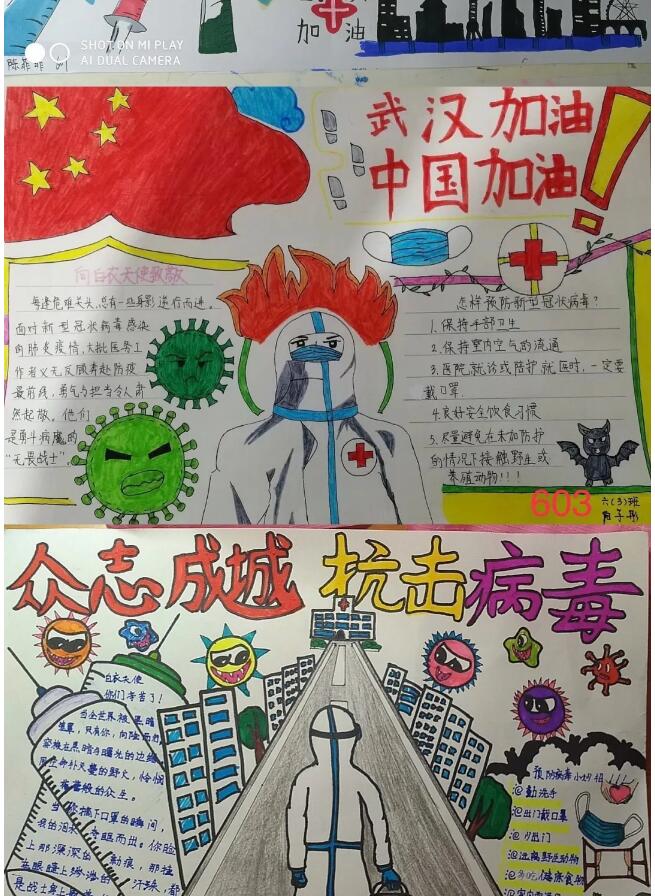 加油
SHOT ON MI PLAY
AI DUAL CAMERA
武汉加油
中国加油
向白衣天使致敬
每逢危难关头,总有一些身影逆行而进。
面对新型冠状病毒感染
的肺炎疫情,大批医务工
作者义无反顾奔赴防疫
最前线,勇气与担当令人肃
然起敬。他们
是勇斗病魔的
“无畏战士”。
怎样预防新型冠状病毒?
1.保持手部卫生
2.保持室内空气的流通
3.医院就诊或陪护就医时,一定要
戴口罩
4.良好安全饮食习惯
5.尽量避免在未加防护
的情况下接触野生或
养殖动物!!!
603
六(3)班
众志成城 抗击病毒
白衣天使
你们辛苦了!
当全世界被
只有你,向险而行
预防病毒小妙招
勤洗手
出门戴口罩
少出门
远离野生动物
健康食物